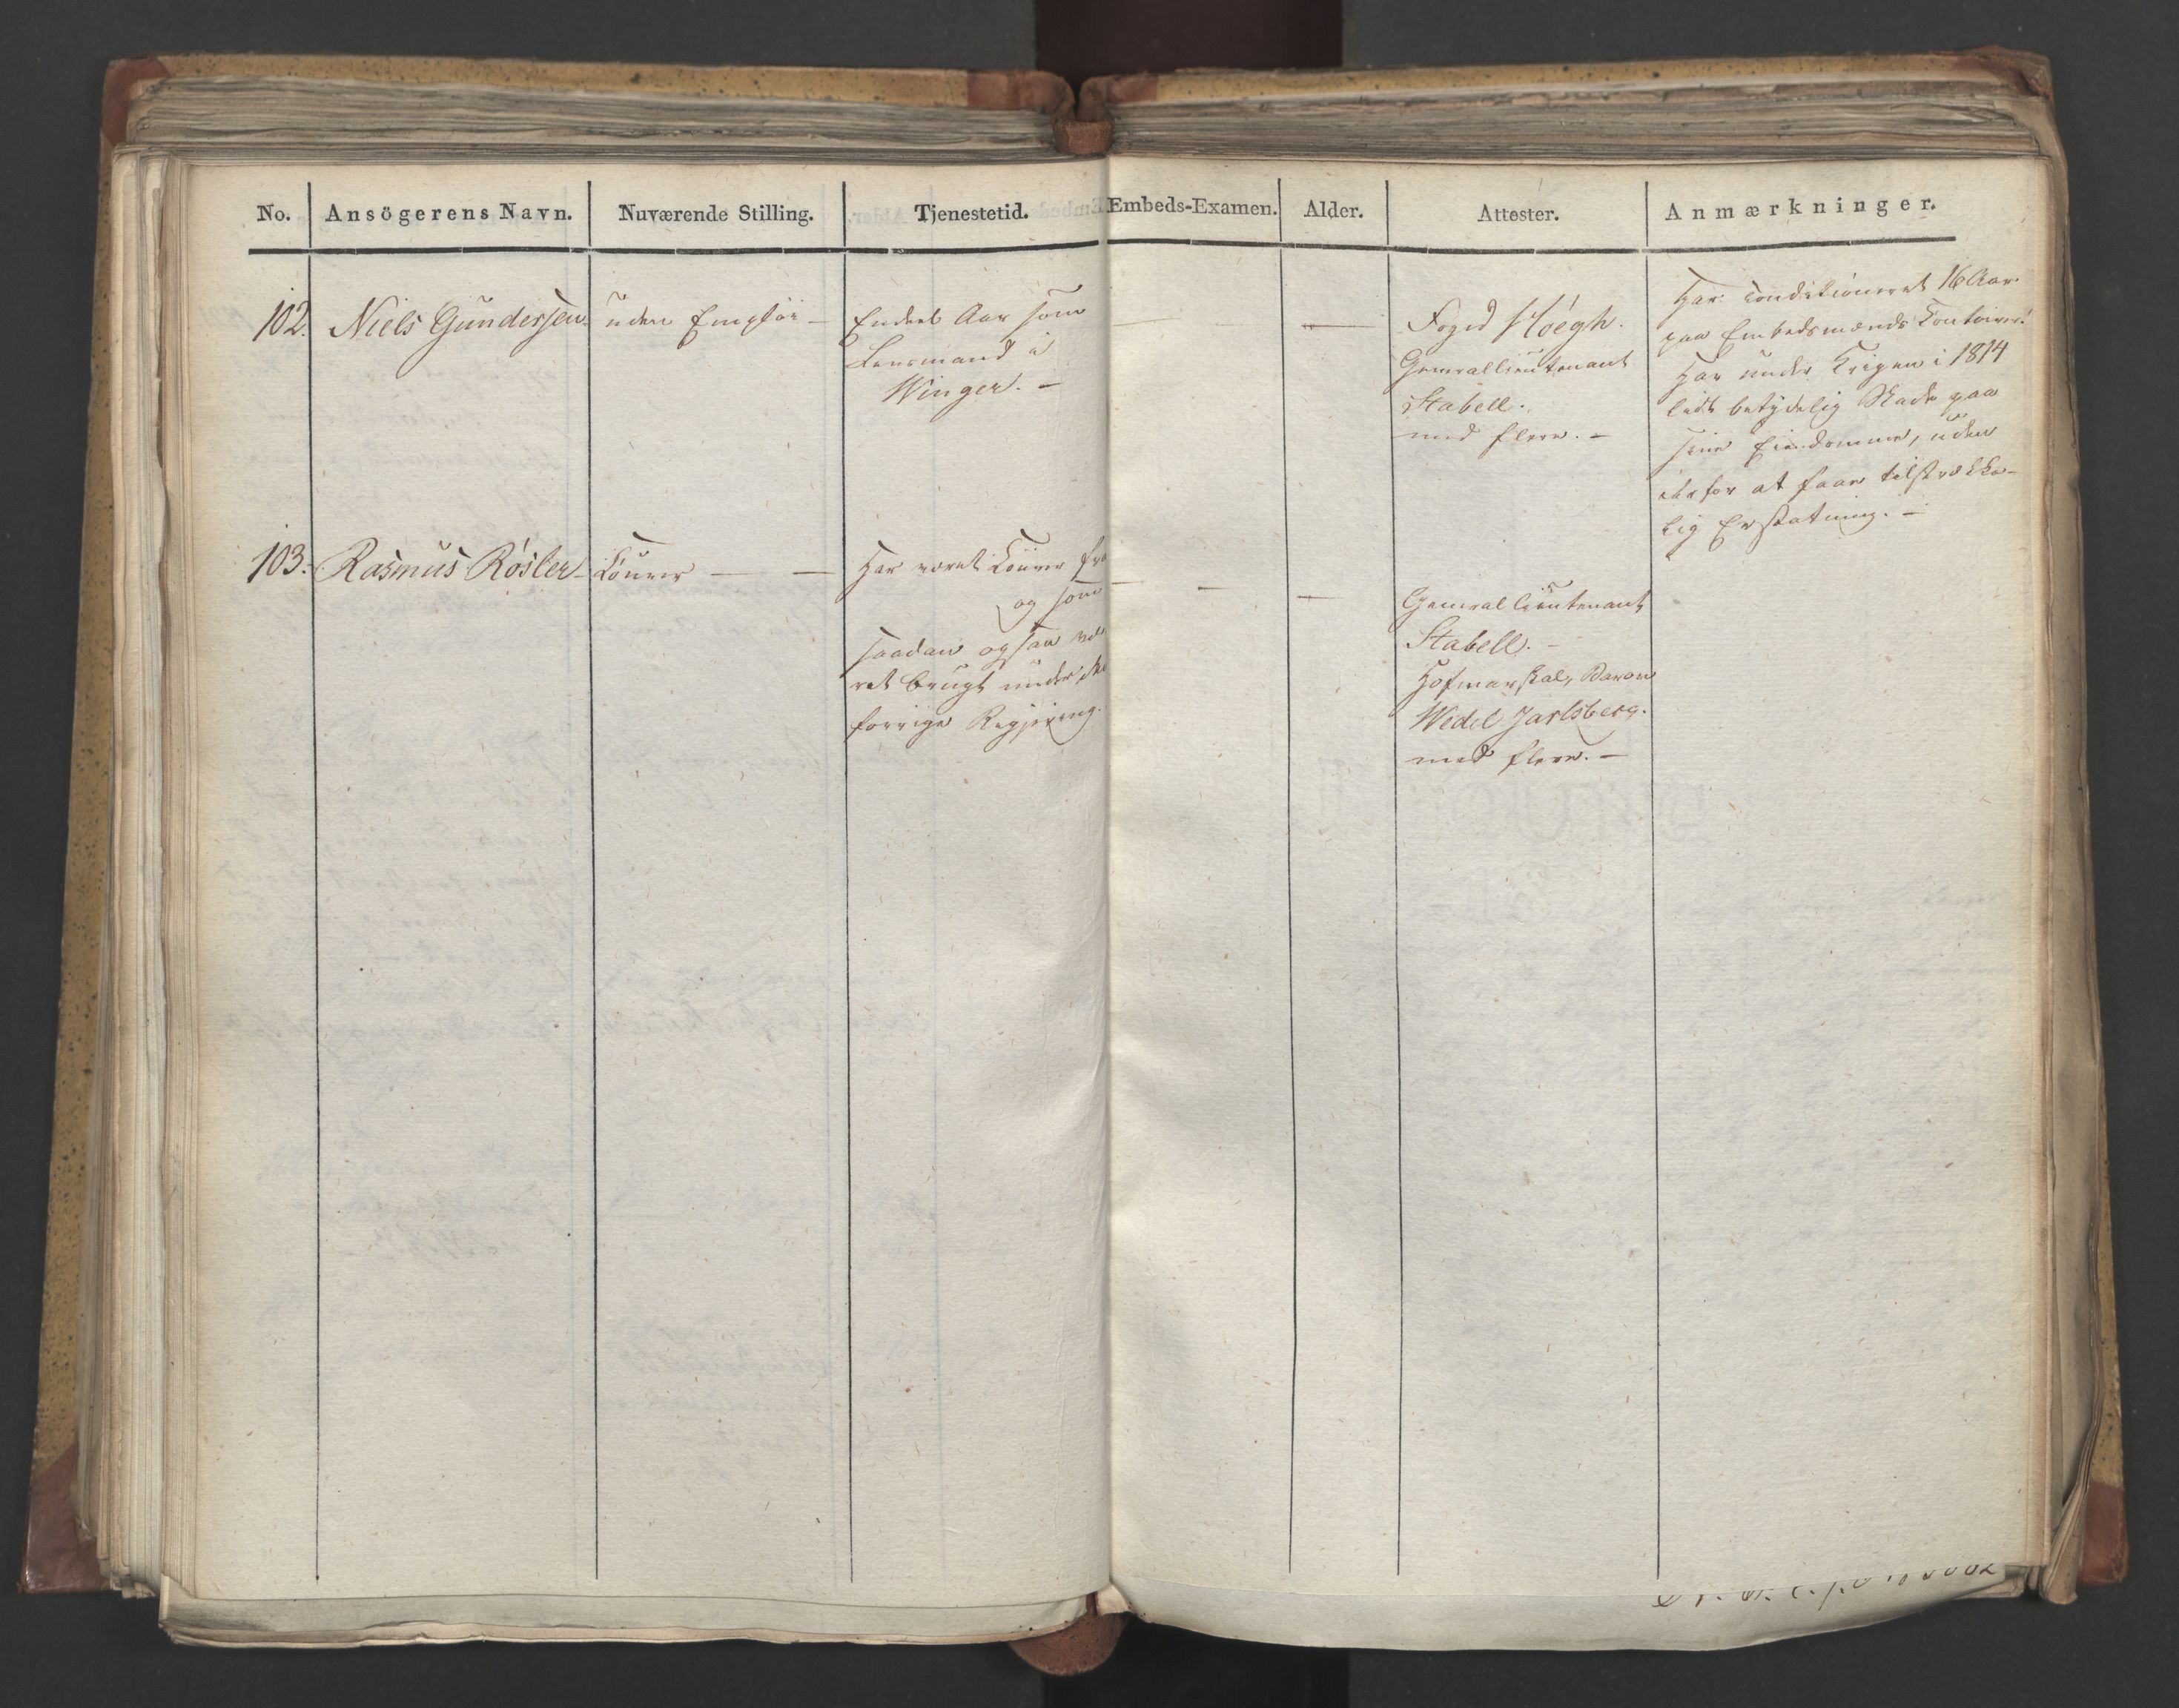 No. Ansögerens Navn. Nuværende Stilling. Tjenestetid. Embeds-Examen. Alder. Attester. Anmærkninger.
102. Niels Gundersen
uden Employ —
Endeel Aar som
Lensmand i
Winger. —
—
—
Foged Höegh.
Generallieutenant
Stabell.
med flere. —
Har conditioneret 16 Aar
paa Embedsmænds Contoirer.
Har under Krigen i 1814
lidt betydelig Skade paa
sine Eiendomme, uden
derfor at faae tilstrække-
lig Erstatning. —
103. Rasmus Rösler
Löuver — —
Har været Löuver
og som
saadan ogsaa væ
ret brugt under
forrige Regjering.
— —
—
Generallieutenant
Stabell. —
Hofmarskal, Baron
Wedel Jarlsberg.
med flere. —